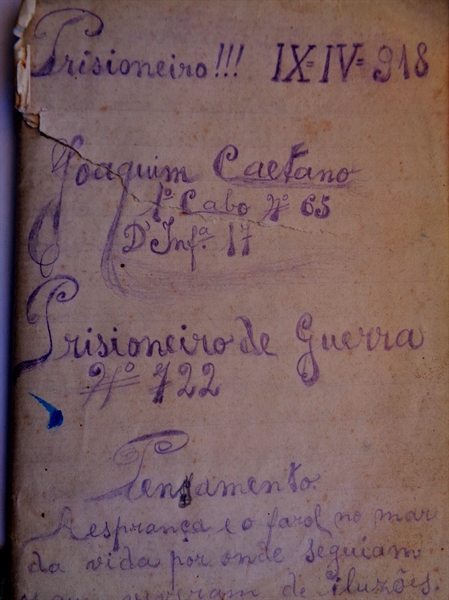 Prisioneiro!!! IX=IV=918
Joaquim Caetano
1º Cabo Nº 65
D'Infª. 17
Prisioneiro de Guerra
Nº 722
Pensamento
A esprança e o farol no mar
da vida por onde seguiam
de iluzões.